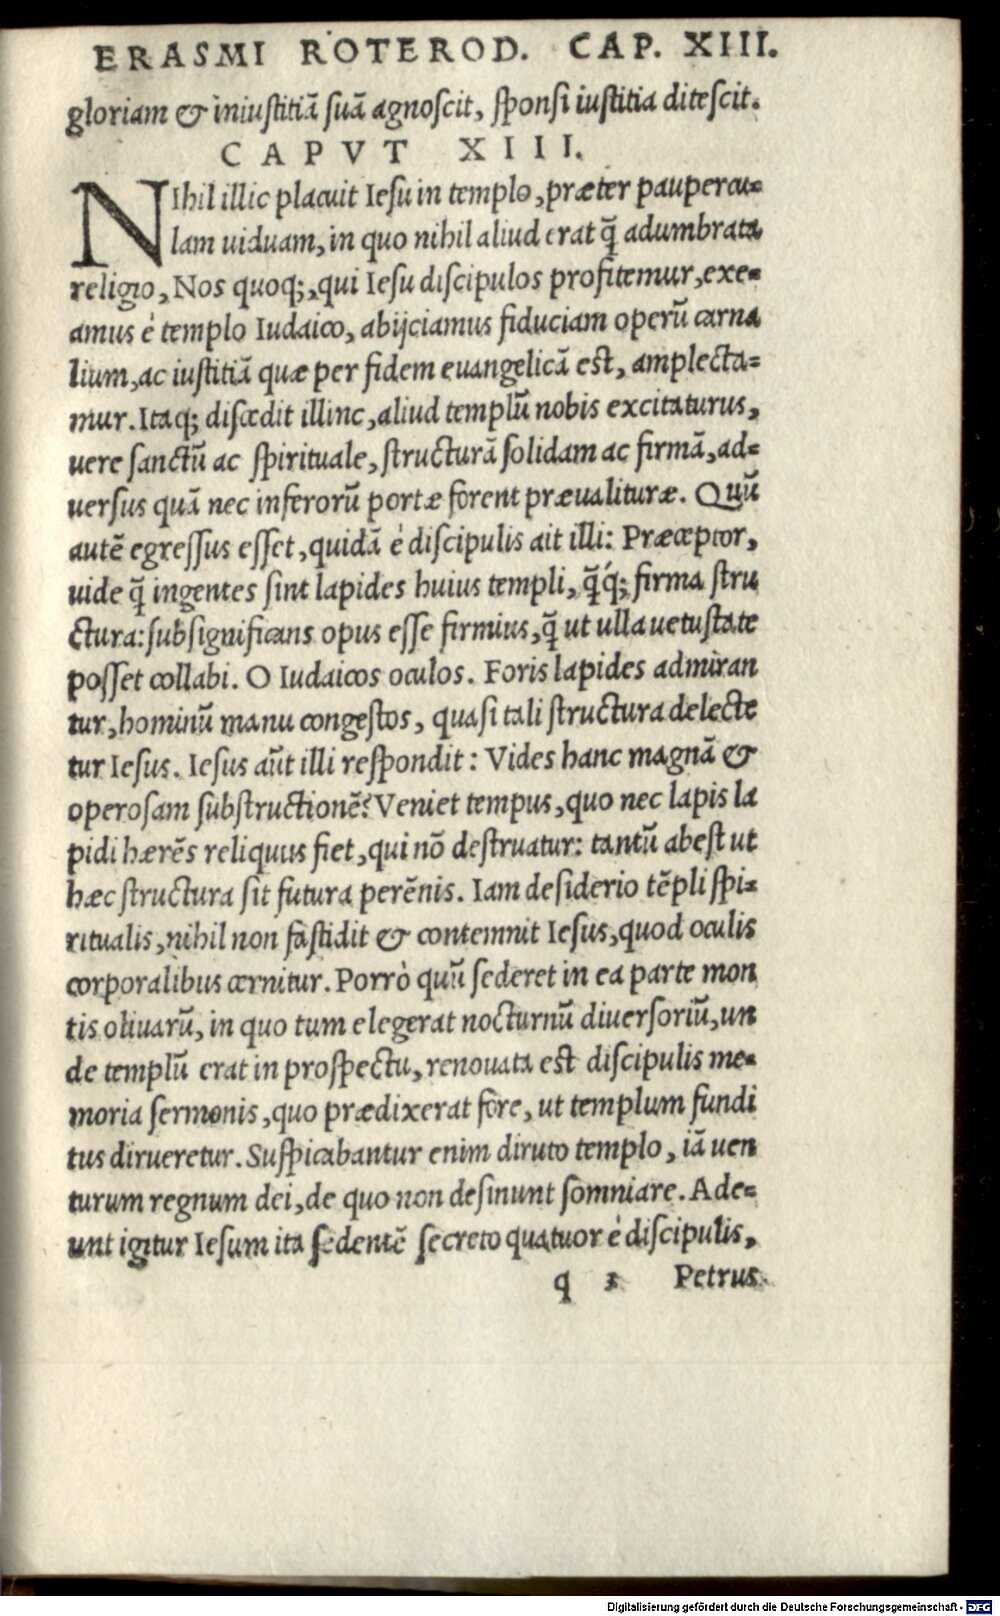 ERASMI ROTEROD. CAP. XIII.
gloriam & iniustitiā suā agnoscit, sponsi iustitia ditescit.
CAPVT XIII.
NIhil illic placuit Iesu in templo, præter paupercu=
lam uiduam, in quo nihil aliud erat q̃ adumbrata
religio, Nos quoq;, qui Iesu discipulos profitemur, exe=
amus è templo Iudaico, abijciamus fiduciam operū carna
lium, ac iustitiā quæ per fidem euangelicā est, amplecta=
mur. Itaq; discedit illinc, aliud templū nobis excitaturus,
uere sanctū ac spirituale, structurā solidam ac firmā, ad=
uersus quā nec inferorū portæ forent præualituræ. Quū
autē egressus esset, quidā è discipulis ait illi: Præceptor,
uide q̃ ingentes sint lapides huius templi, q̃q́; firma stru
ctura: subsignificans opus esse firmius, q̃ ut ulla uetustate
posset collabi. O Iudaicos oculos. Foris lapides admiran
tur, hominū manu congestos, quasi tali structura delecte
tur Iesus. Iesus aūt illi respondit: Vides hanc magnā &
operosam substructionē? Veniet tempus, quo nec lapis la
pidi hærēs reliquus fiet, qui nō destruatur: tantū abest ut
hæc structura sit futura perēnis. Iam desiderio tēpli spi=
ritualis, nihil non fastidit & contemnit Iesus, quod oculis
corporalibus cernitur. Porrò quū sederet in ea parte mon
tis oliuarū, in quo tum elegerat nocturnū diuersoriū, un
de templū erat in prospectu, renouata est discipulis me=
moria sermonis, quo prædixerat fore, ut templum fundi
tus dirueretur. Suspicabantur enim diruto templo, iā uen
turum regnum dei, de quo non desinunt somniare. Ade=
unt igitur Iesum ita sedentē secreto quatuor è discipulis,
q 3 Petrus
Digitalisierung gefördert durch die Deutsche Forschungsgemeinschaft - DFG